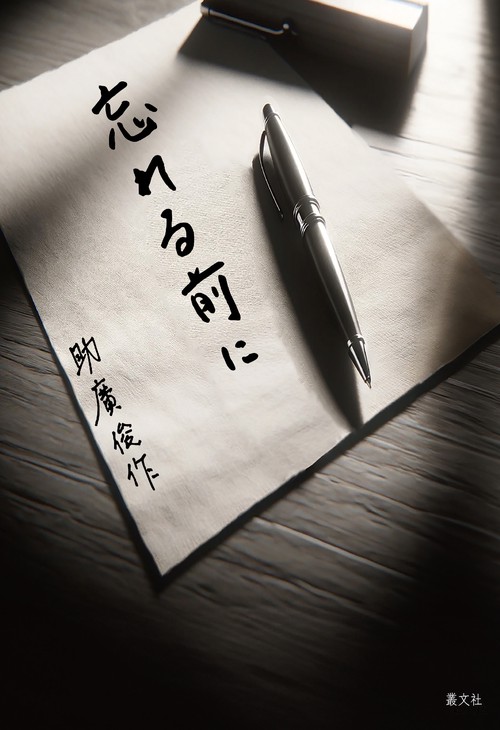 忘れる前に
助廣俊作
叢文社